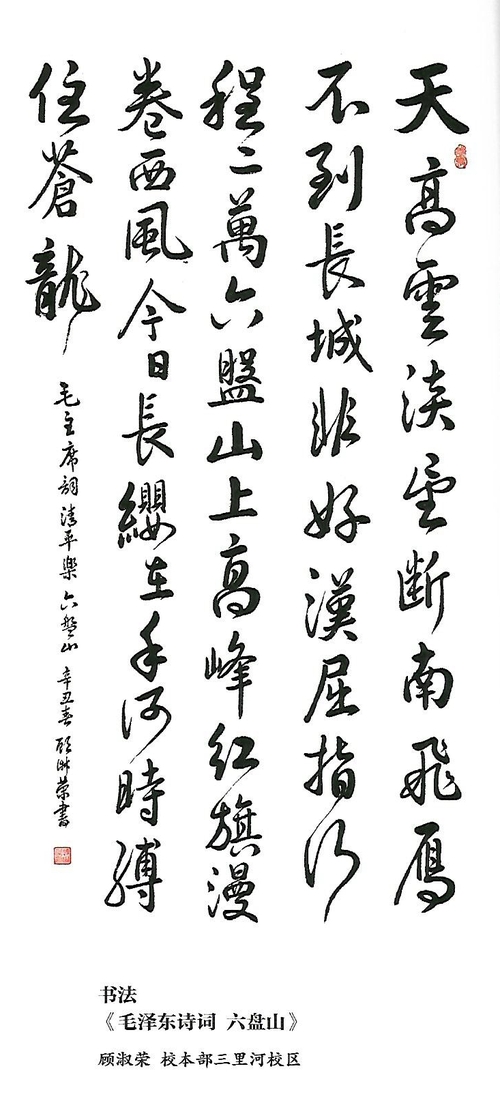 天高雲淡望断南飛鴈
不到長城非好漢屈指行
程二萬六盤山上高峰紅旗漫
卷西風今日長纓在手何時縛
住蒼龍
毛主席詞清平樂六盤山 辛丑春 顧淑榮書
书法
《毛泽东诗词 六盘山》
顾淑荣 校本部三里河校区